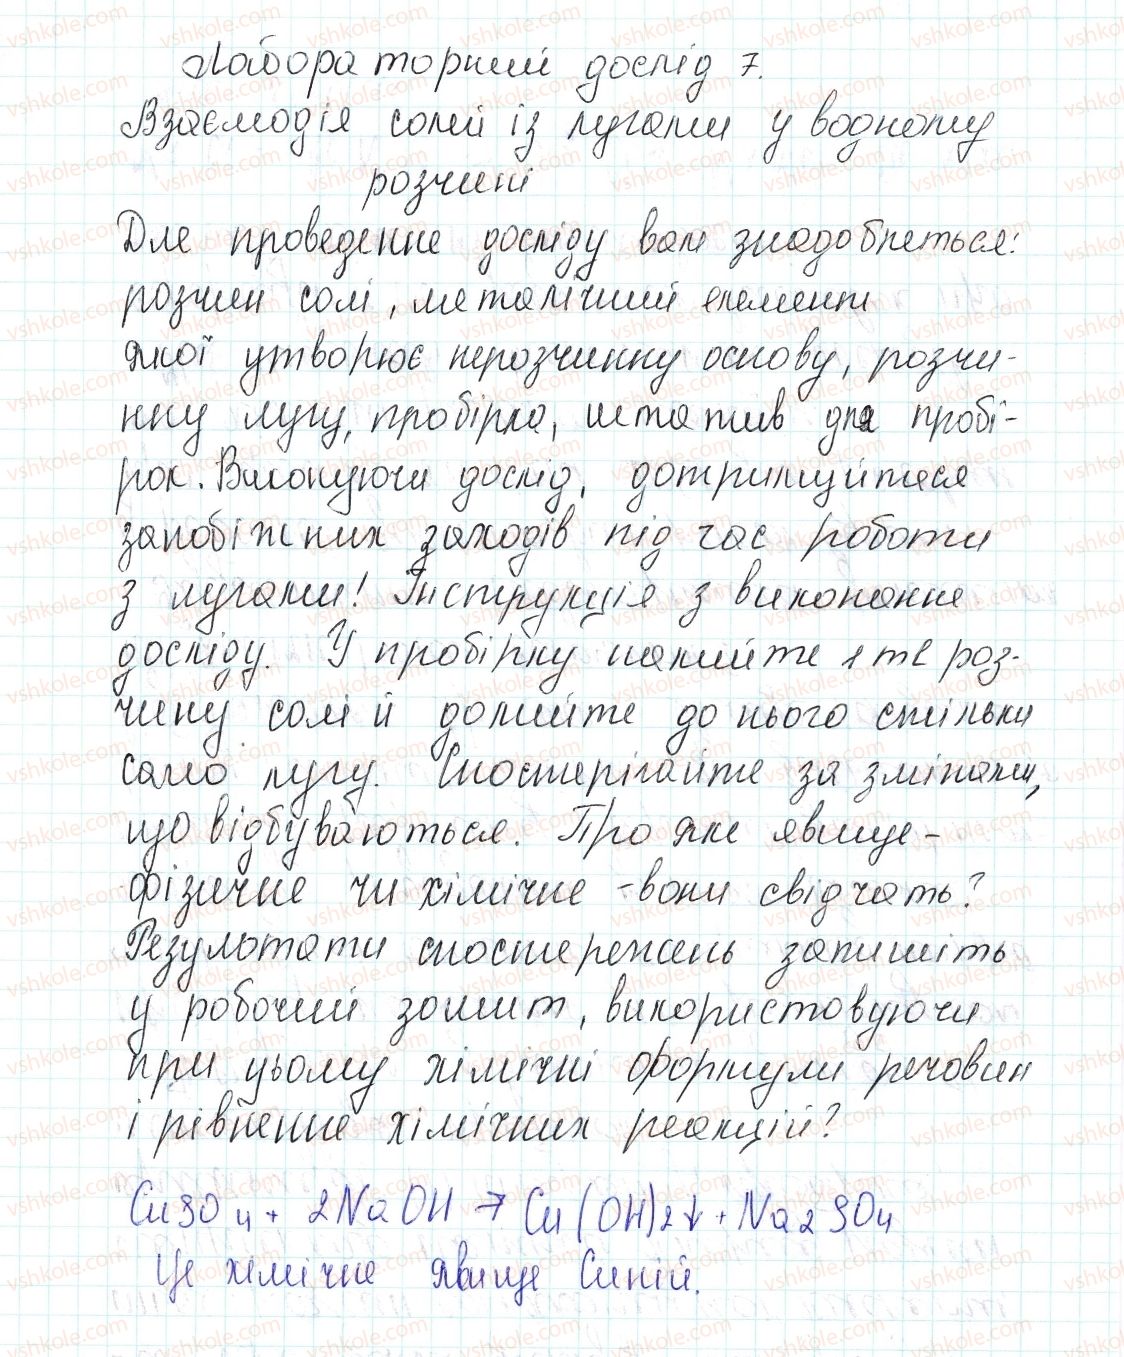 Лабораторний дослід 7.
Взаємодія солей із лугами у водному
розчині
Для проведення досліду вам знадобиться:
розчин солі, металічний елемент
якої утворює нерозчинну основу, розчи-
нну лугу, пробірка, штатив для пробі-
рок. Виконуючи дослід, дотримуйтеся
запобіжних заходів під час роботи
з лугами! Інструкція з виконання
досліду. У пробірку налийте 1 мл роз-
чину солі й долийте до нього стільки
само лугу. Спостерігайте за змінами,
що відбуваються. Про яке явище -
фізичне чи хімічне - вони свідчать?
Результати спостережень запишіть
у робочий зошит, використовуючи
при цьому хімічні формули речовин
і рівняння хімічних реакцій?
CuSO4 + 2NaOH → Cu(OH)2↓ + Na2SO4
Це хімічне явище Синій.